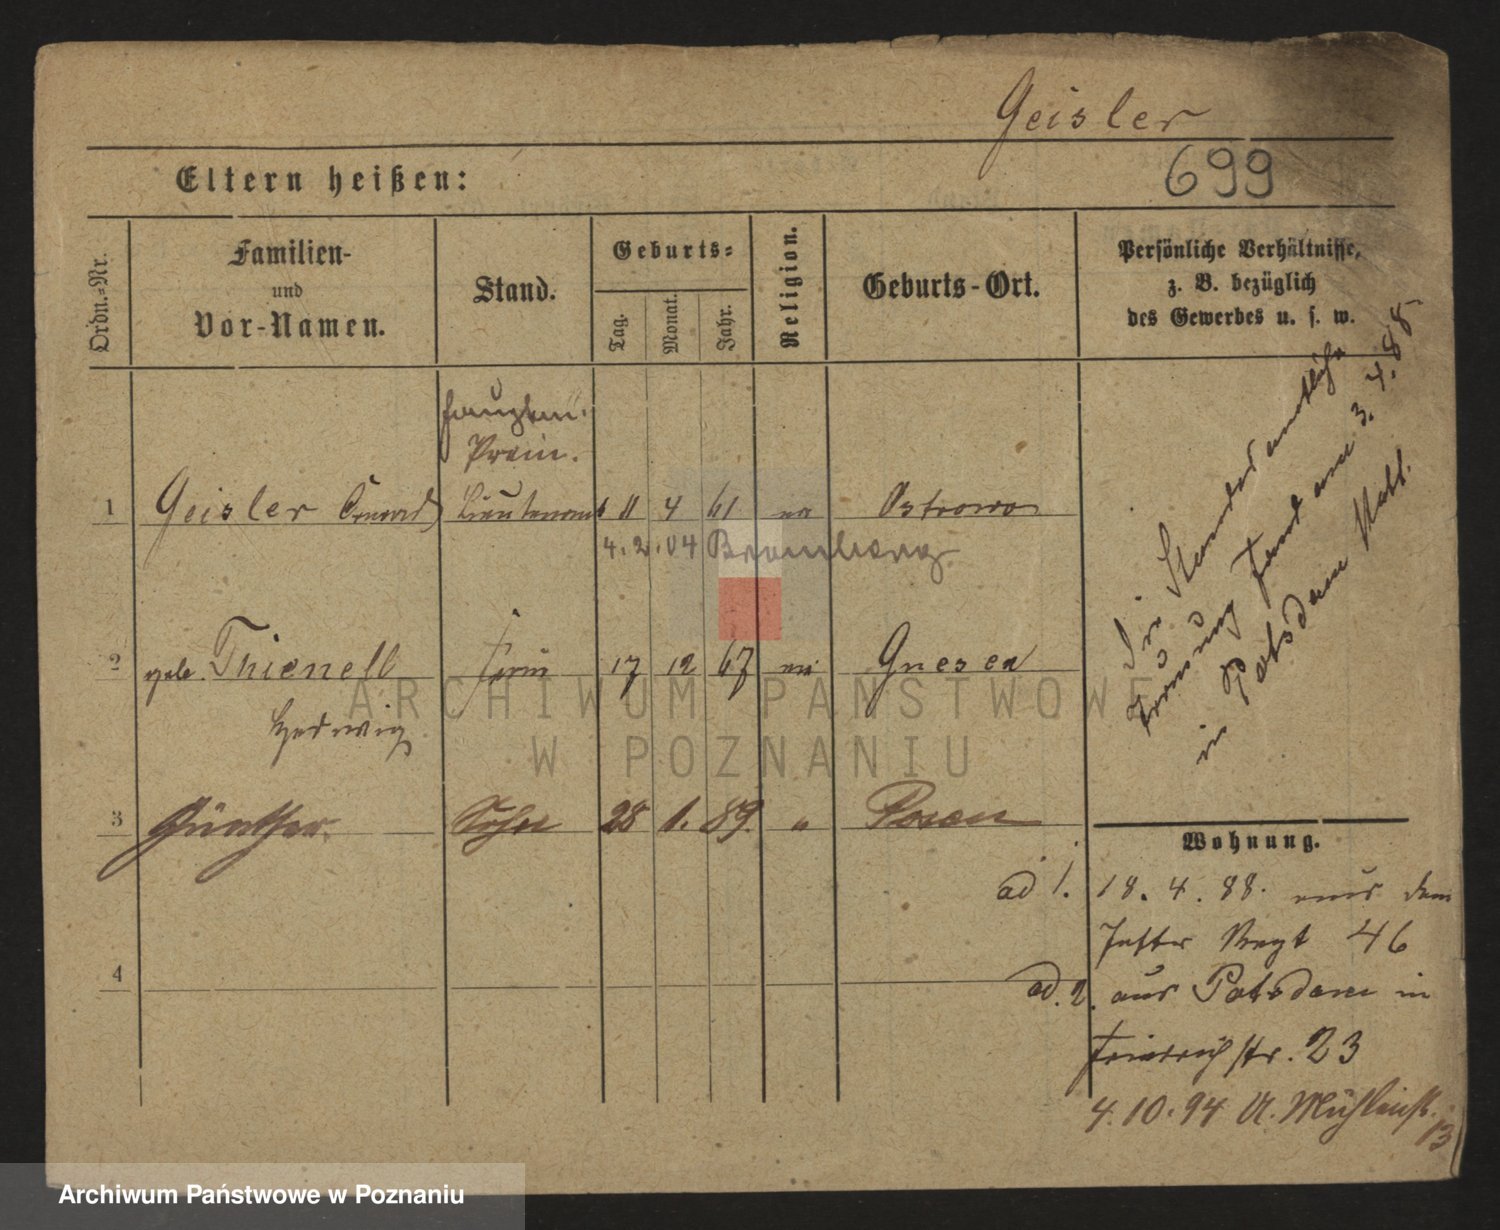 Geisler
699
Eltern heißen:
Ordn.-Nr.
Familien-
und
Vor-Namen.
Stand.
Geburts-
Tag.
Monat.
Jahr.
Religion.
Geburts-Ort.
Persönliche Verhältnisse,
z. B. bezüglich
des Gewerbes u. s. w.
Hauptm.
Prem.
1 Geisler Conrad Lieutenant 11 4 61 ev Ostrowo
4.2.04 Bromberg
2 geb. Thienell Frau 17 12 67 ev Gnesen
Hedwig
3 Günther Sohn 28 1. 89. " Posen
4
Die Standesamtliche
Trauung fand am 3.4.88
in Potsdam statt.
Wohnung.
ad 1. 18.4.88. aus dem
Inftr Regt 46
ad. 2. aus Potsdam in
Friedrichstr. 23
4.10.94 U. Mühlenstr.
13
ARCHIWUM PAŃSTWOWE
W POZNANIU
Archiwum Państwowe w Poznaniu